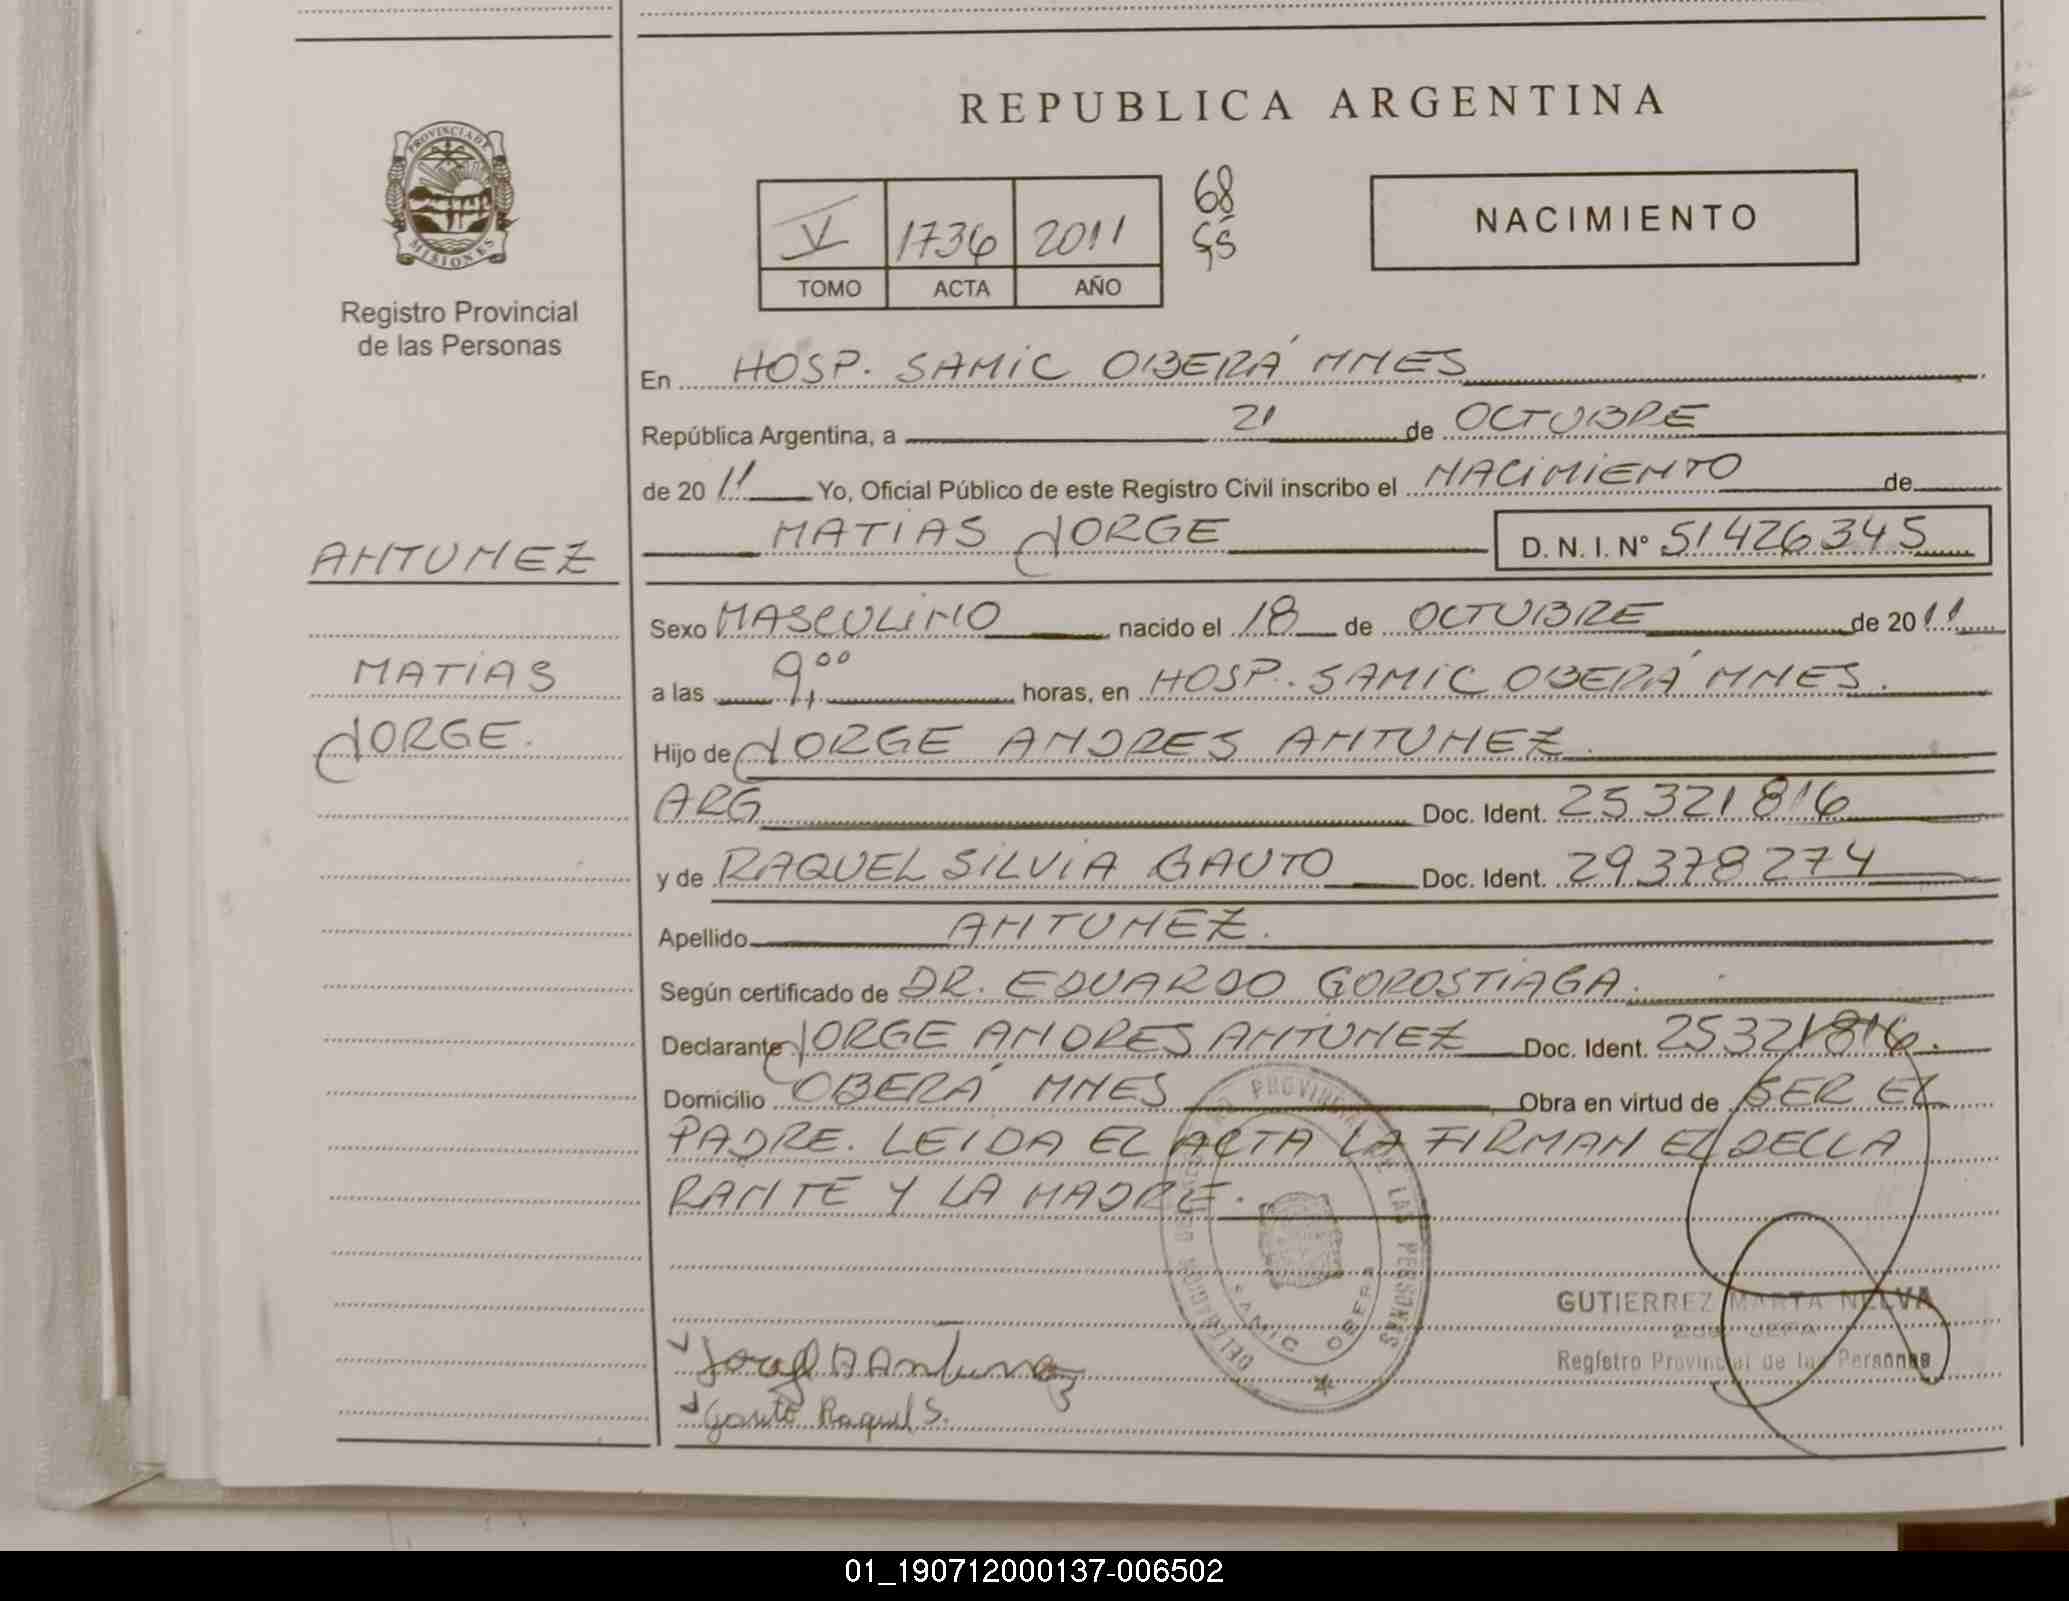 REPUBLICA ARGENTINA
PROVINCIA DE
MISIONES
Registro Provincial
de las Personas
V 1736 2011
TOMO ACTA AÑO
68
NACIMIENTO
En HOSP. SAMIC OBERÁ MNES
República Argentina, a 21 de OCTUBRE
de 20 11 Yo, Oficial Público de este Registro Civil inscribo el NACIMIENTO de
MATIAS JORGE D. N. I. N° 51426345
ANTUNEZ
MATIAS
JORGE.
Sexo MASCULINO nacido el 18 de OCTUBRE de 20 11
a las 9,00 horas, en HOSP. SAMIC OBERÁ MNES.
Hijo de JORGE ANDRES ANTUNEZ.
ARG Doc. Ident. 25321816
y de RAQUEL SILVIA GAUTO Doc. Ident. 29378274
Apellido ANTUNEZ.
Según certificado de DR. EDUARDO GOROSTIAGA.
Declarante JORGE ANDRES ANTUNEZ Doc. Ident. 25321816.
Domicilio OBERÁ MNES, Obra en virtud de SER EL
PADRE. LEIDA EL ACTA LA FIRMAN EL DECLA
RANTE Y LA MADRE.
PROVINCIAL DE LAS PERSONAS
DELEGACION
SAMIC OBERA
GUTIERREZ MARTA NELVA
Registro Provincial de las Personas
Jorge A Antunez
Gauto Raquel S.
01_190712000137-006502